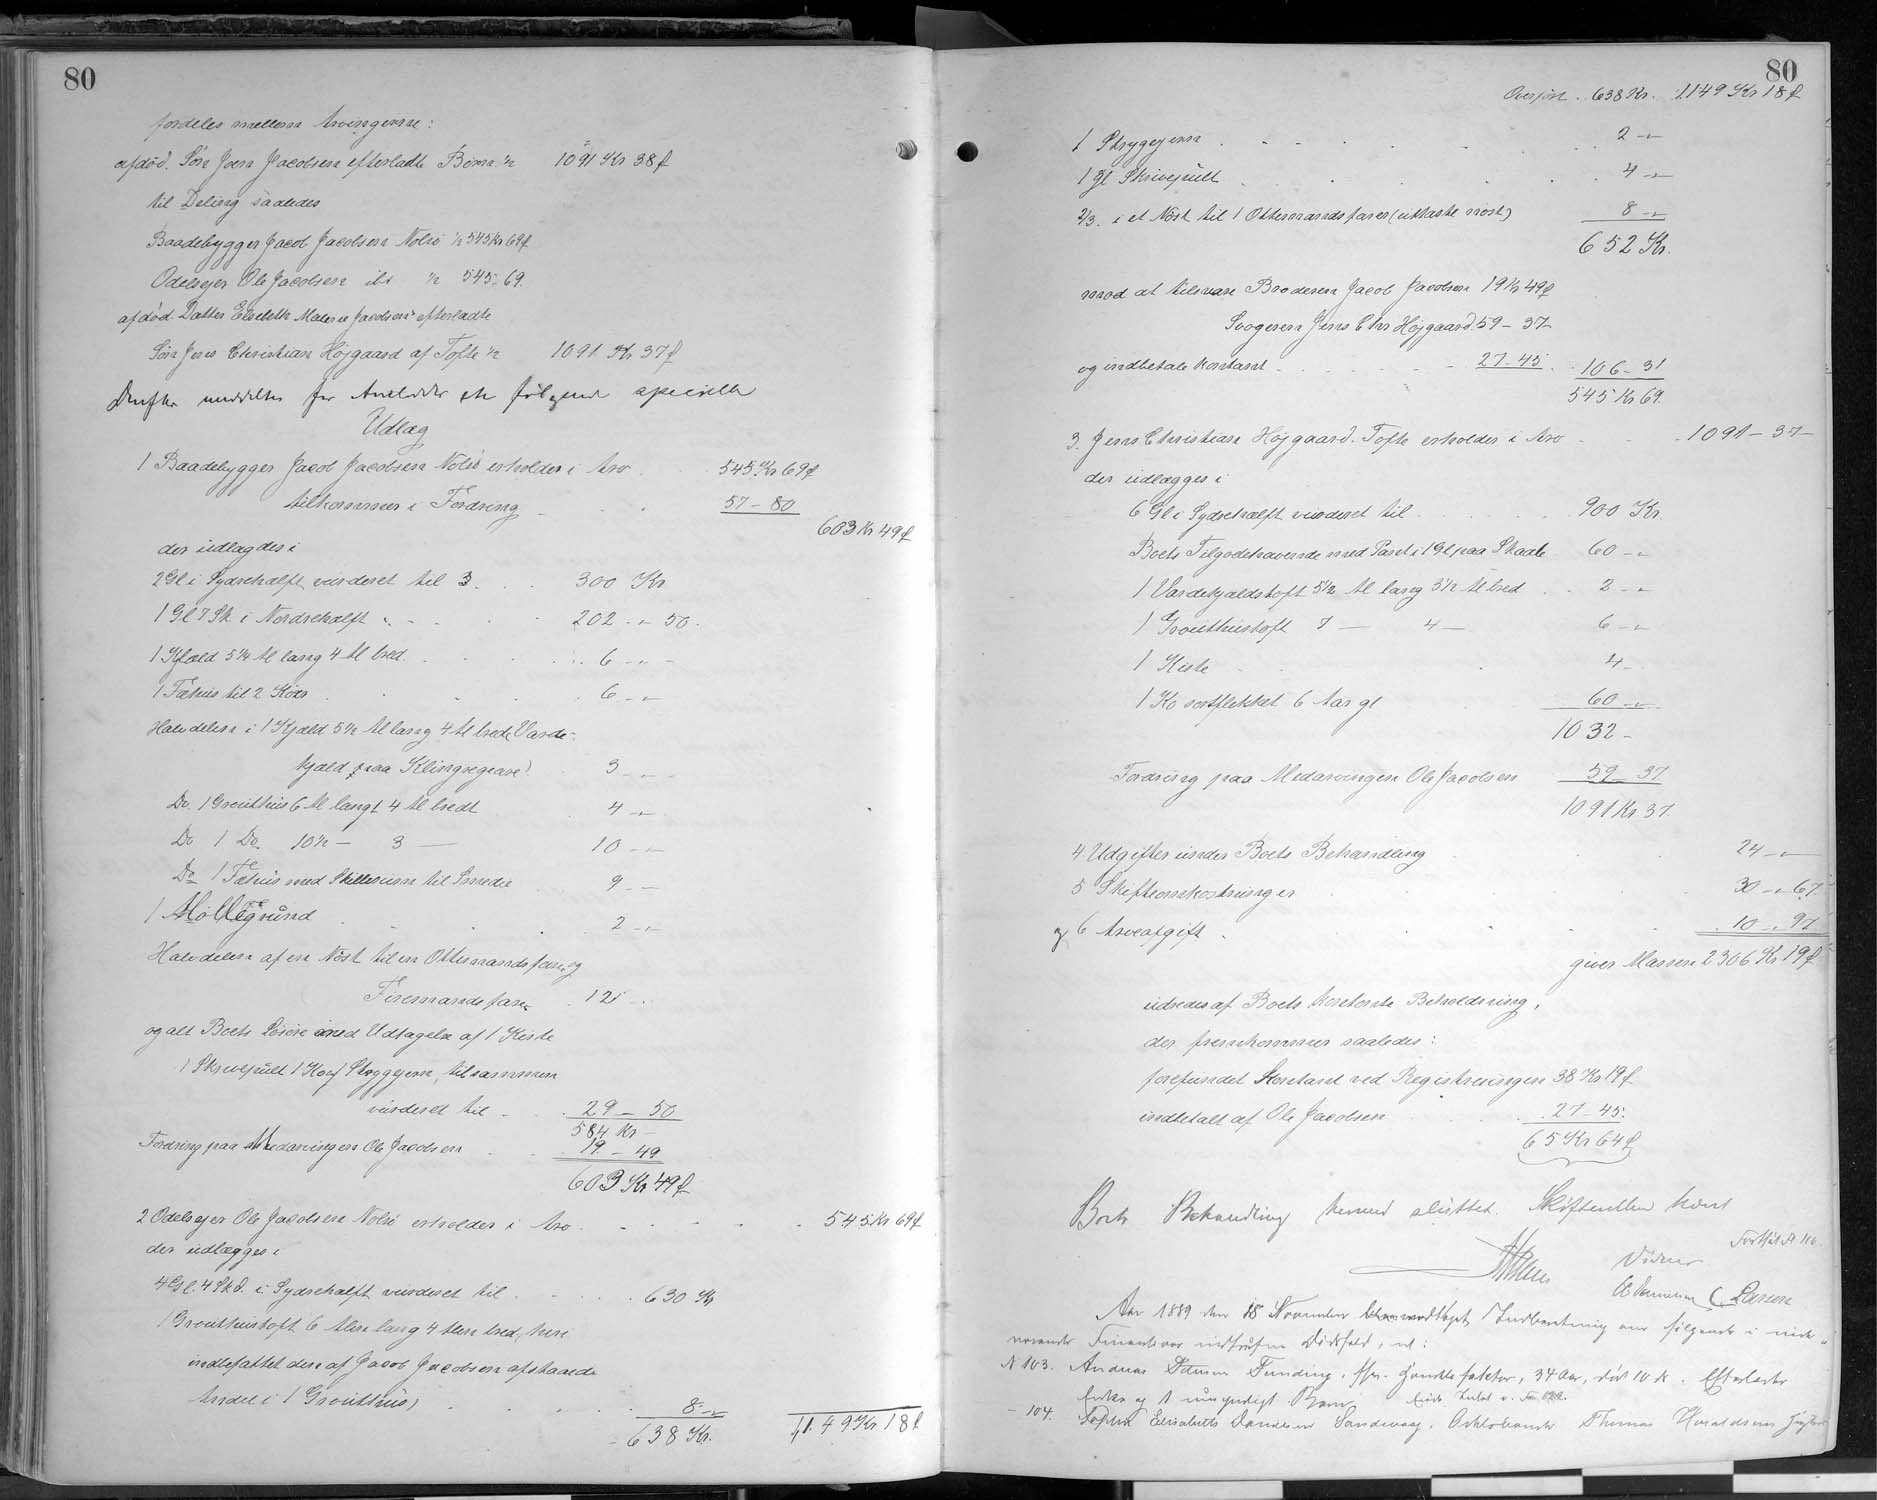 80
fordeles mellem Arvingerne:
afdød. Søn Joen Jacobsen efterladte Børn ½ 1091 Kr 38 ø
til Deling saaledes
Baadebygger Jacob Jacobsen Nolsø ½ 545 Kr 69 ø
Odelsejer Ole Jacobsen ibd ½ 545 „ 69.
afdød. Datter Elsebeth Malene Jacobsens efterladte
Søn Jens Christian Højgaard af Tofte ½ 1091 Kr 37 ø
Derefter meddeltes for Anledet følgende specielle
Udlæg
1 Baadebygger Jacob Jacobsen Nolsø erholder i Arv 545 Kr 69 ø
tilkommer i Fordring 57 – 80
603 Kr 49 ø
der udlagdes i
2 Gl i Sydrehalft vurderet til 3. 300 Kr
1 Gl 7 Sk i Nordrehalft „ 202 „ 50.
1 Kjæld 5½ Al lang 4 Al bred 6 „
1 Fæhus til 2 Køer 6 „
Halvdelen i 1 Kjæld 5½ Al lang 4 Al bred (Varde-
kjæld paa Klingregjare) 3 „
Do. 1 Grouthus 6 Al langt 4 Al bredt 4 „
Do 1 Do 10½ – 3 – 10 „
Do 1 Fæhus med Skillerum til Smedie 9 –
1 Møllegrund 2 „
Halvdelen af en Nøst til en Ottemandsfar og
Firemandsfar 12 „
og alt Boets Løsøre med Udtagelse af 1 Kiste
1 Skrivepult 1 Ko og Strygejern, tilsammen
vurderet til 29 – 50
584 Kr –
Fordring paa Medarvingen Ole Jacobsen 19 – 49
603 Kr 49 ø
2 Odelsejer Ole Jacobsen Nolsø erholder i Arv 545 Kr 69 ø
der udlægges i
4 Gl. 4 Sk d. i Sydrehalft vurderet til 630 Kr
1 Grouthustoft 6 Alen lang 4 Alen bred, heri
indbefattet den af Jacob Jacobsen afstaaede
Andel i 1 Grouthus) 8 „
638 Kr. 1149 Kr 18 ø
80
Overført 638 Kr. 1149 Kr 18 ø
1 Strygejern 2 „
1 gl Skrivepult 4 „
2/3. i et Nøst til 1 Ottemandsfarer (uttaste nøst) 8 „
652 Kr.
mod at tilsvare Broderen Jacob Jacobsen 19 Kr 49 ø
Svogeren Jens Chr Højgaard 59 – 37
og indbetale kontant 27 – 45 106 – 31
545 Kr 69.
3. Jens Christian Højgaard. Tofte erholder i Arv 1091 – 37 –
der udlægges i
6 Gl i Sydrehalft vurderet til 900 Kr.
Boets Tilgodehavende med Pant i 1 Gl paa Skaale 60 „
1 Vardekjældstoft 5½ Al lang 3½ Al bred 2 „
1 Grouthustoft 7 – 4 – 6 „
1 Kiste 4 –
1 Ko sortflekket 6 Aar gl 60 „
1032 –
Fordring paa Medarvingen Ole Jacobsen 59 – 37
1091 Kr 37.
4. Udgifter under Boets Behandling 24 „
5 Skifteomkostninger 30 „ 67
og 6 Arveafgift 10 „ 97
giver Massen 2306 Kr 19 ø
udredes af Boets kontante Beholdning,
der fremkommer saaledes:
forefundet Kontant ved Registreringen 38 Kr 19 ø
indbetalt af Ole Jacobsen 27 – 45.
65 Kr 64 ø
Boets Behandling hermed sluttet. Skifteretten hævet
Vidner
Aar 1889 den 18 November modtaget Indberetning om følgende i
indtrufne Dødsfald, nl:
N 103. Andreas Funding, 34 Aar, død 10 . Efterlader
Enke og 1 umyndigt Barn
– 104. Sophie Elisabeth Danielsen Sandevaag, Thomas